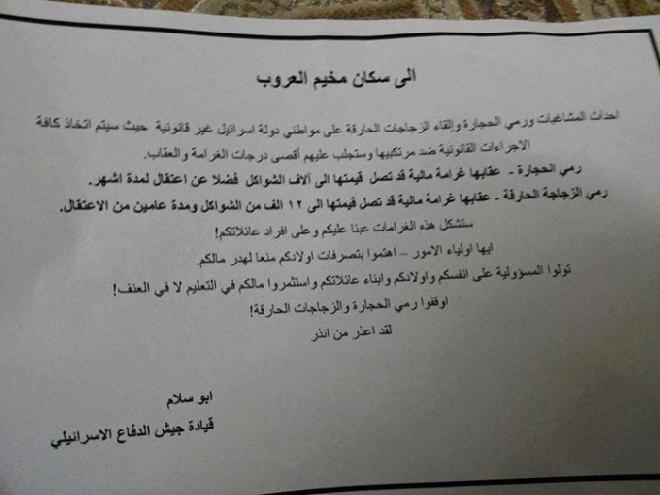 الى سكان مخيم العروب
احداث المشاغبات ورمي الحجارة وإلقاء الزجاجات الحارقة على مواطني دولة اسرائيل غير قانونية حيث سيتم اتخاذ كافة
الاجراءات القانونية ضد مرتكبيها وستجلب عليهم أقصى درجات الغرامة والعقاب.
رمي الحجارة - عقابها غرامة مالية قد تصل قيمتها الى آلاف الشواكل فضلا عن اعتقال لمدة اشهر.
رمي الزجاجة الحارقة - عقابها غرامة مالية قد تصل قيمتها الى ١٢ الف من الشواكل ومدة عامين من الاعتقال.
ستشكل هذه الغرامات عبئا عليكم وعلى افراد عائلاتكم!
ايها اولياء الامور – اهتموا بتصرفات اولادكم منعا لهدر مالكم.
تولوا المسؤولية على انفسكم واولادكم وابناء عائلاتكم واستثمروا مالكم في التعليم لا في العنف!
اوقفوا رمي الحجارة والزجاجات الحارقة!
لقد اعذر من انذر
ابو سلام
قيادة جيش الدفاع الاسرائيلي